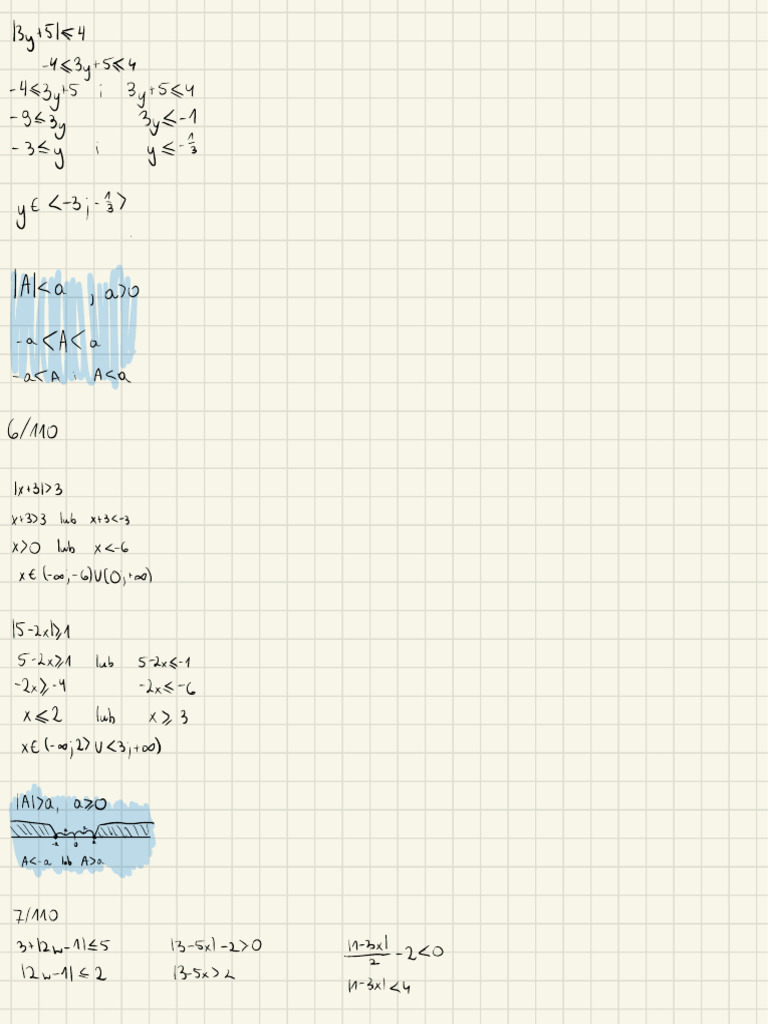 |3y+5|≤4
-4≤3y+5≤4
-4≤3y+5 i 3y+5≤4
-9≤3y 3y≤-1
-3≤y i y≤-1/3
y∈<-3;-1/3>
|A|<a , a>0
-a<A<a
-a<A i A<a
6/110
|x+3|>3
x+3>3 lub x+3<-3
x>0 lub x<-6
x∈(-∞;-6)∪(0;+∞)
|5-2x|≥1
5-2x≥1 lub 5-2x≤-1
-2x≥-4 -2x≤-6
x≤2 lub x≥3
x∈(-∞;2>∪<3;+∞)
|A|>a, a≥0
-a 0 a
A<-a lub A>a
7/110
3+|2w-1|≤5 |3-5x|-2>0 |1-3x|/2-2<0
|2w-1|≤2 |3-5x>2 |1-3x|<4